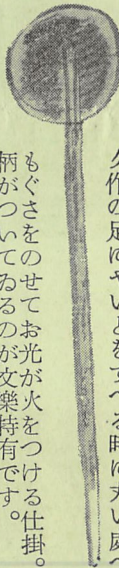 久作の足にやいとをすべる時に丸い庭へ
もぐさをのせてお光が火をつける仕掛。
柄がついてゐるのが文樂特有です。